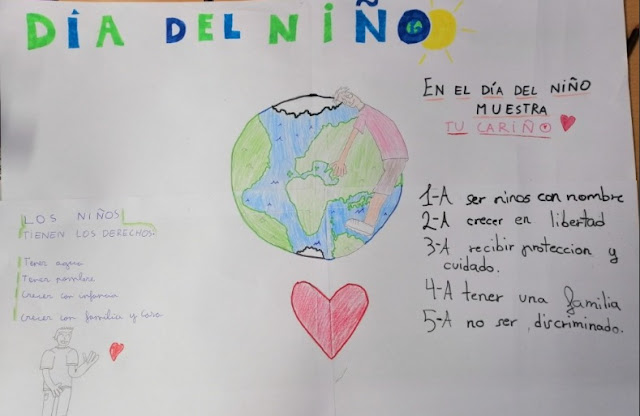 DÍA DEL NIÑO
EN EL DÍA DEL NIÑO
MUESTRA
TU CARIÑO
1-A ser ninos con nombre
2-A crecer en libertad
3-A recibir proteccion y
cuidado.
4-A tener una familia
5-A no ser, discriminado.
LOS NIÑOS
TIENEN LOS DERECHOS:
Tener agua
Tener nombre
Crecer con infancia
Crecer con familia y Casa